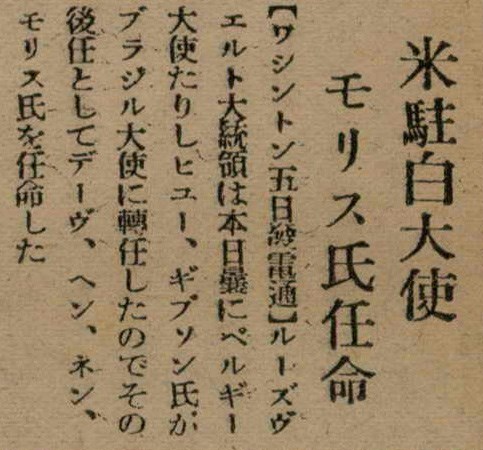 米駐白大使
モリス氏任命
【ワシントン五日發電通】ルーズヴ
エルト大統領は本日曩にペルギー
大使たりしヒユー、ギブソン氏が
ブラジル大使に轉任したのでその
後任としてデーヴ、ヘン、ネン、
モリス氏を任命した